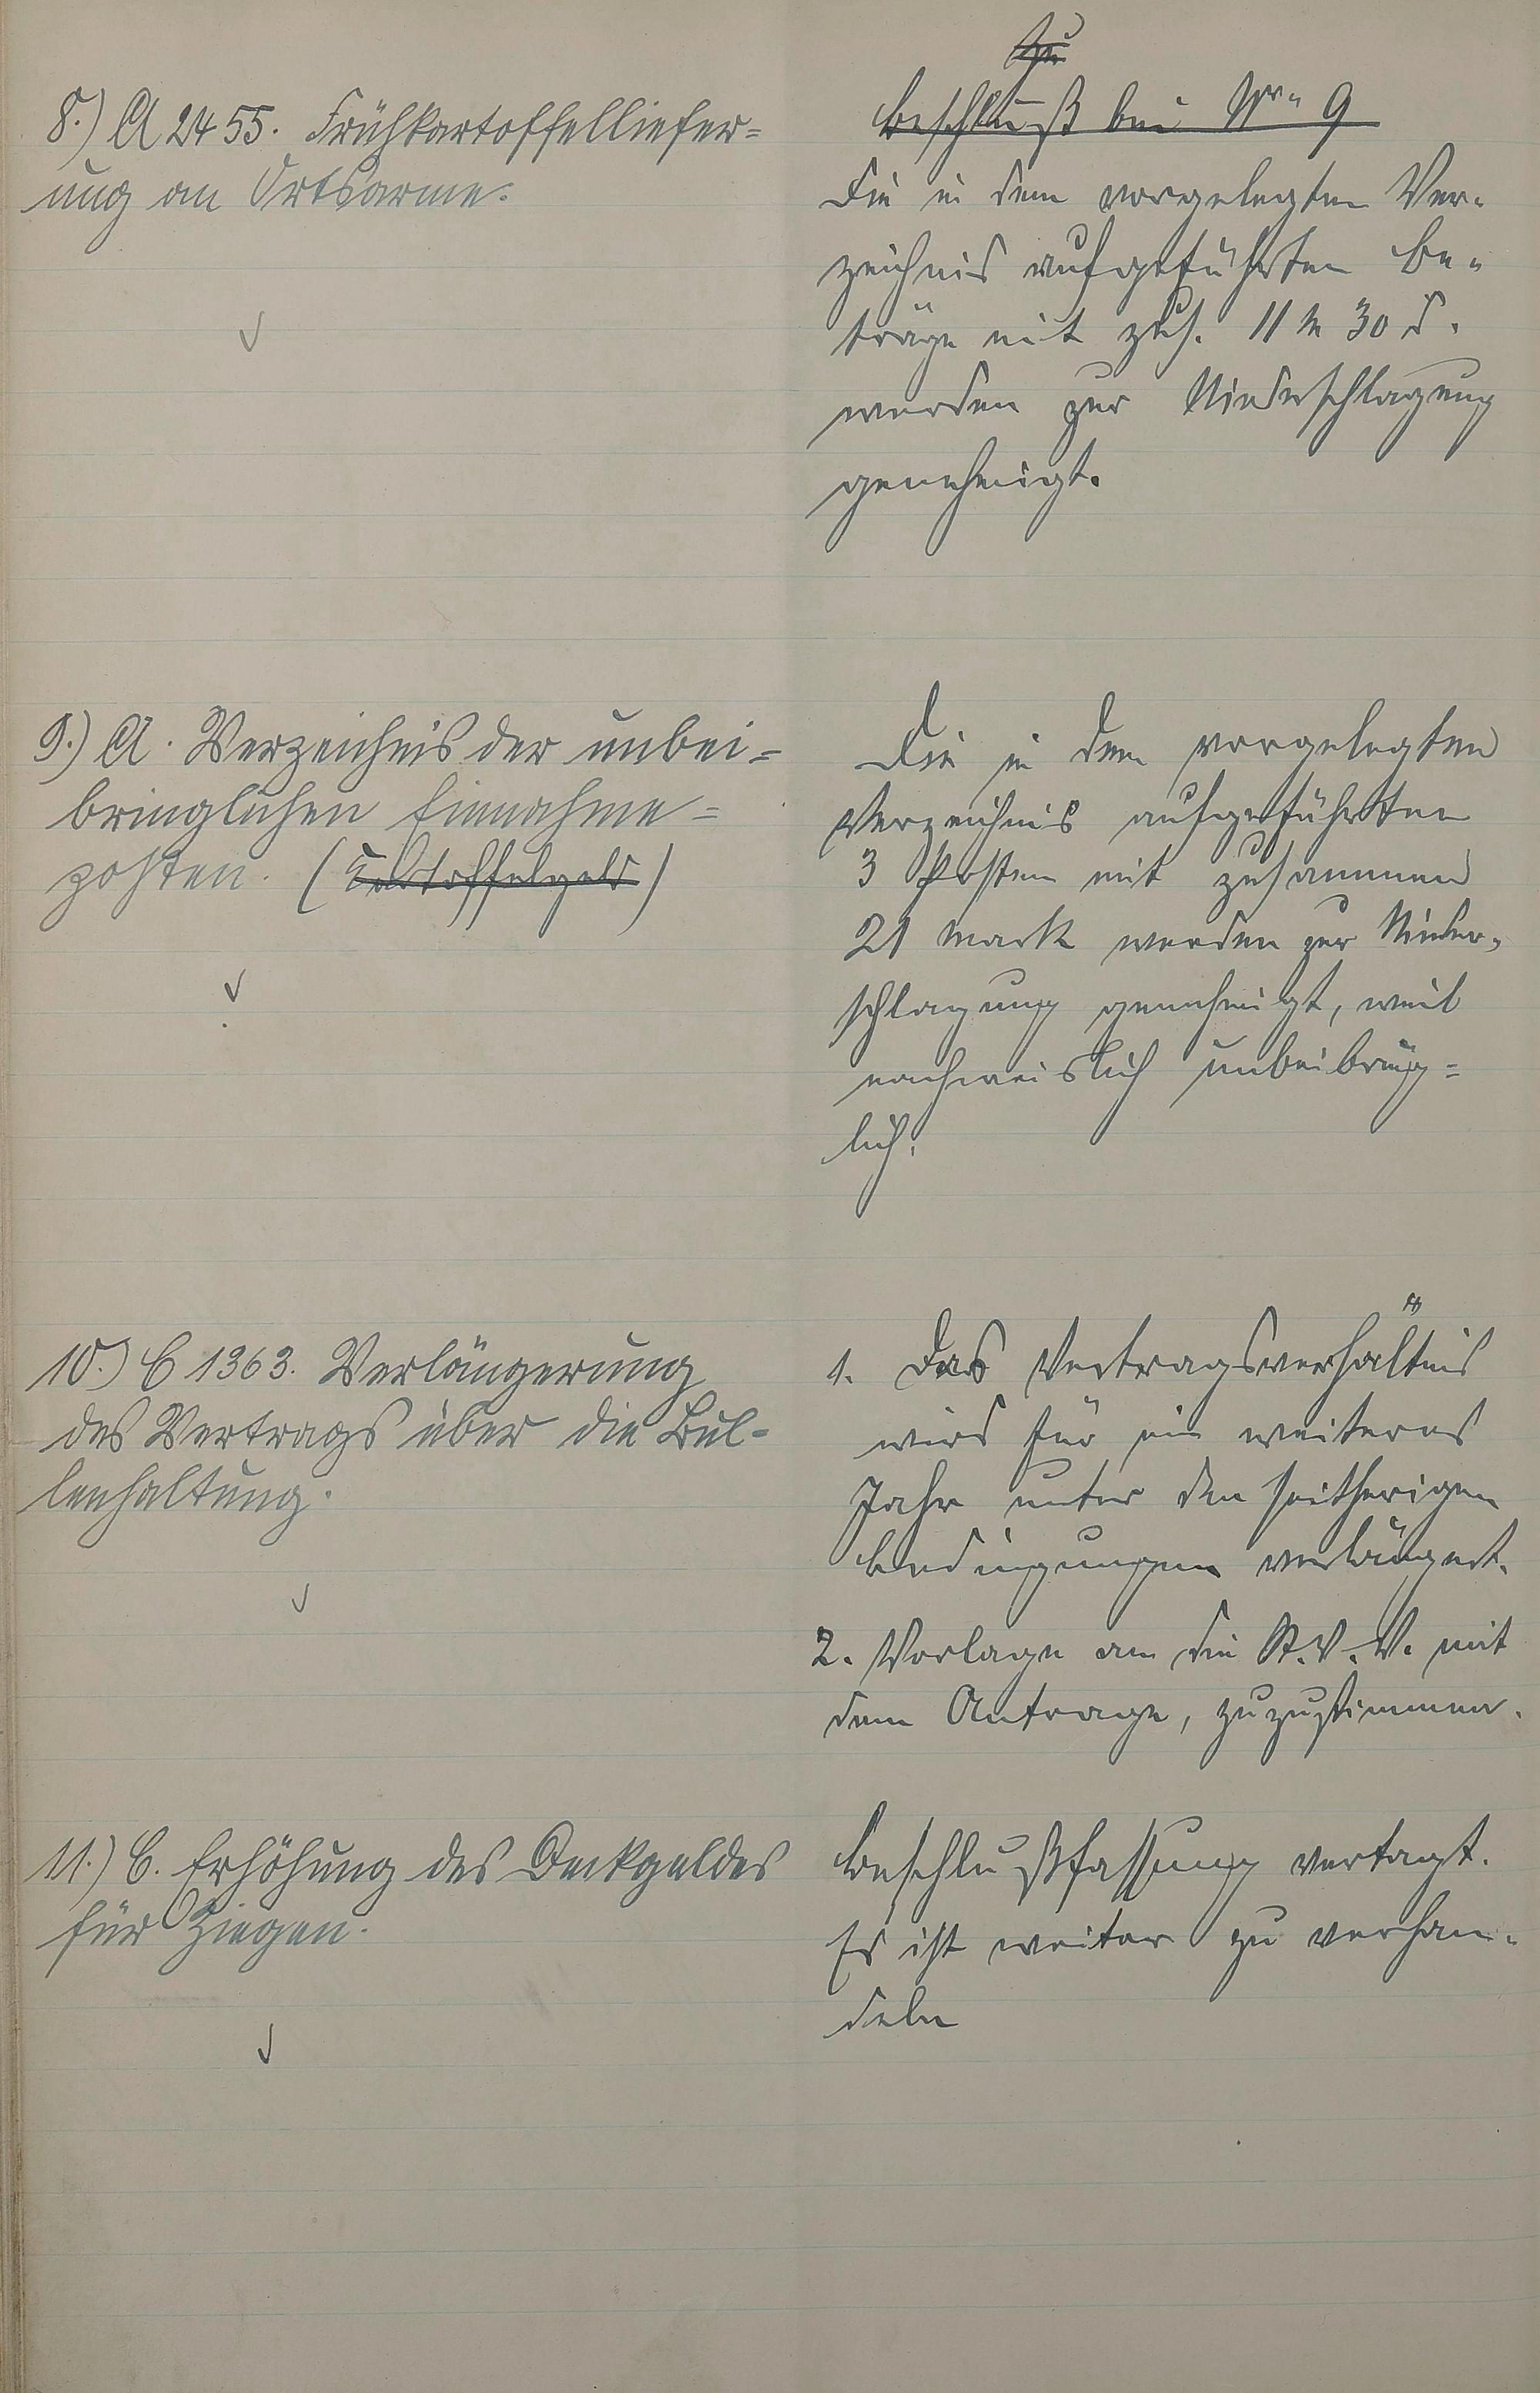 8.) A 2455. Frühkartoffelliefer=
ung an Ortsarme.
Beschluß bei Nr. 9
Die in dem vorgelegten Ver-
zeichnis aufgeführten Be-
träge mit zus. 11 M 30 ₰.
werden zur Niederschlagung
genehmigt.
9.) A. Verzeichnis der unbei=
bringlichen Einnahme=
posten. (Kartoffelgeld)
Die in dem vorgelegten
Verzeichnis aufgeführten
3 Posten mit zusammen
21 Mark werden zur Nieder-
schlagung genehmigt, weil
nachweislich unbeibring=
lich.
10.) C 1363. Verlängerung
des Vertrags über die Bul=
lenhaltung.
1. Das Vertragsverhältnis
wird für ein weiteres
Jahr unter den seitherigen
Bedingungen verlängert.
2. Vorlage an die St.V.V. mit
dem Antrage, zuzustimmen.
11.) C. Erhöhung des Deckgeldes
für Ziegen.
Beschlußfassung vertagt.
Es ist weiter zu verhan-
deln